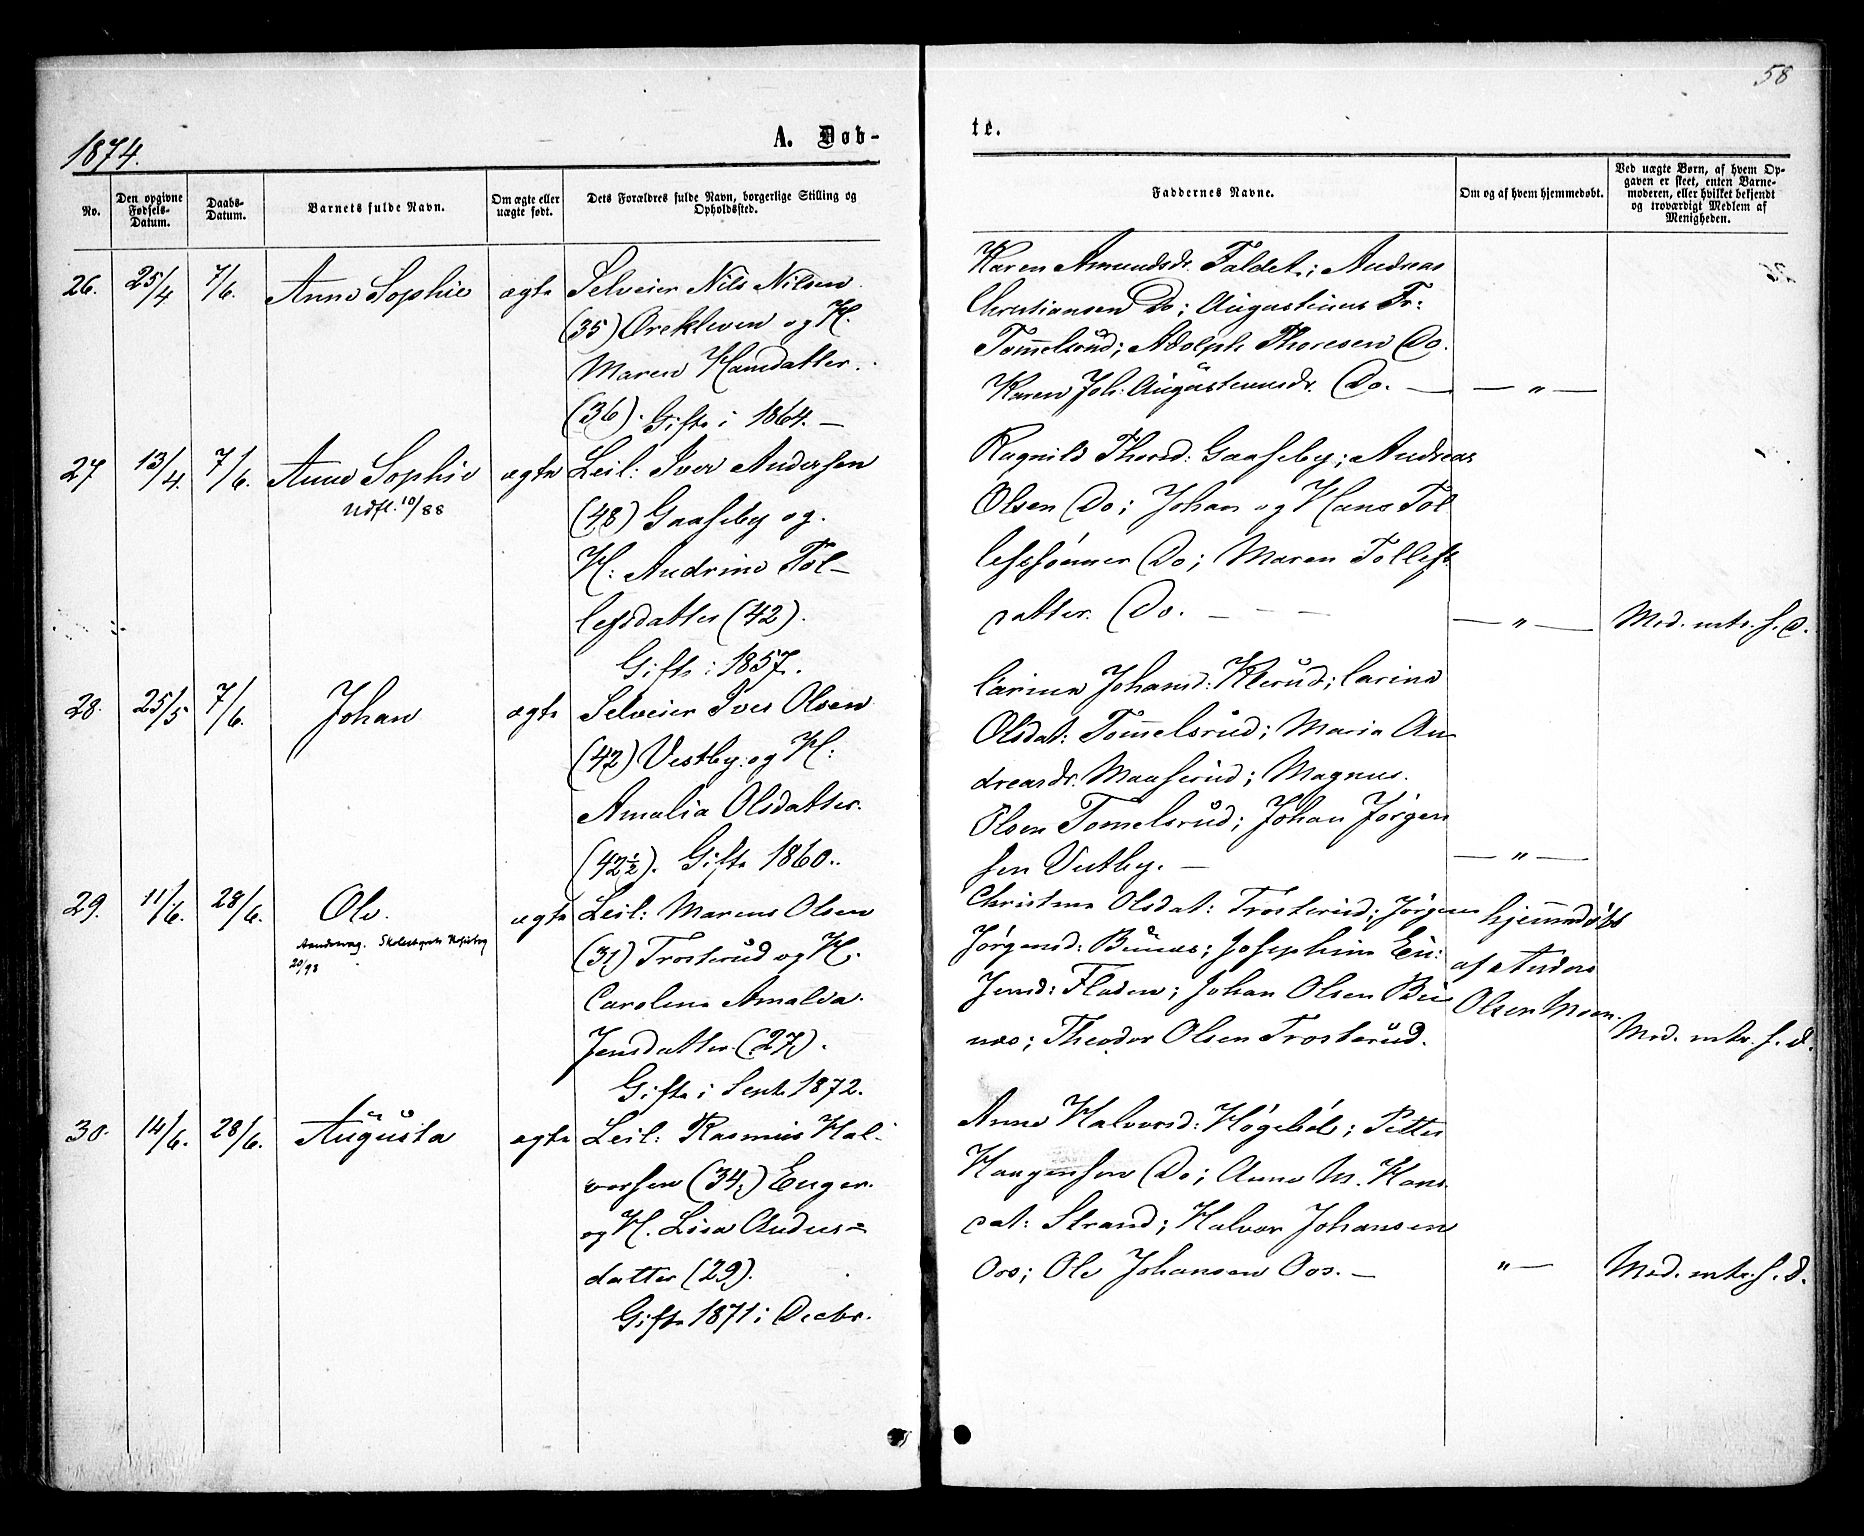 58
1874.
A. Døb-
te.
No.
Den opgivne Fødsels-Datum.
Daabs-Datum.
Barnets fulde Navn.
Om ægte eller uægte født.
Dets Forældres fulde Navn, borgerlige Stilling og Opholdssted.
Faddernes Navne.
Om og af hvem hjemmedøbt.
Ved uægte Børn, af hvem Op-
gaven er skeet, enten Barne-
moderen, eller hvilket bekjendt
og troværdigt Medlem af
Menigheden.
26. 25/4 7/6. Anne Sophie ægte
Selveier Nils Nilsen
(35) Orekleven og H.
Maren Hansdatter.
(36). Gifte i 1864. —
Karen Amundsdr. Faldet; Andreas
Christiansen Do; Augustinus Fr:
Tommelsrud; Adolph Thoresen Do.
Karen Joh: Augustinusdr. Do. — — " —
27 13/4. 7/6. Anne Sophie ægte
Udfl. 10/88
Leil: Iver Andersen
(48) Gaaseby og.
H: Andrine Tol-
lefsdatter (42).
Gifte i 1857.
Ragnild Thorsd: Gaaseby; Andreas
Olsen Do; Johan og Hans Tol
lefssønner Do; Maren Tollefs
datter. Do. — — " — Mod. mtr. s. d.
28. 25/5 7/6. Johan ægte
Selveier Iver Olsen
(42) Vestby. og H:
Amalia Olsdatter.
(42½). Gifte 1860.
Carina Johansd: Klerud; Carina
Olsdat: Tommelsrud; Maria An
dreasdr. Maaserud; Magnus.
Olsen Tomelsrud; Johan Jørgen
sen Vestby. — — " —
29. 11/6. 28/6. Ole. ægte
20/98
Leil: Marens Olsen
(31) Trosterud og H.
Caroline Amalia.
Jensdatter. (27).
Gifte i Septr 1872.
Christine Olsdat: Trosterud; Jørgen
Jørgensd: Bunæs; Josephine Eu:
Jensd: Fladen; Johan Olsen Bu
næs; Theodor Olsen Trosterud.
hjemmedøbt
af Anders
Olsen Moen.
Mod. mtr. s. d.
30. 14/6. 28/6. Augusta ægte
Leil: Rasmus Hal-
vorsen (34) Enger.
og H. Lisa Anders=
datter (29).
Gifte 1871 i Decbr.
Anne Halvorsd: Høgebøl; Petter
Haagensen Do; Anne M. Hans
dat: Strand; Halvor Johansen
Oos; Ole Johansen Oos. — " — Mod. mtr. s. d.